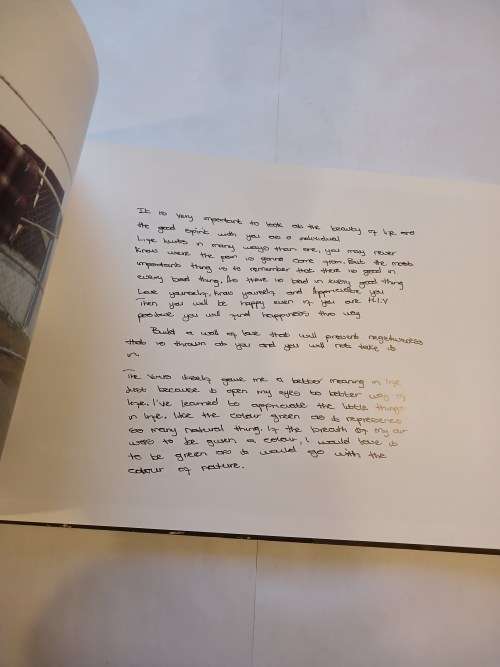 It is very important to look at the beauty of life and
the good spirit with you as a individual
Life hurts in many ways than one, you may never
know were the pain is gonna come from. But the most
important thing is to remember that there is good in
every bad thing, As there is bad in every good thing
Love yourself, know yourself and Appreciate you
Then you will be happy even if you are H.I.V
positive you will find happiness this way
Build a wall of love that will prevent negetiveness
that is thrown at you and you will not take it
in.
The virus itself gave me a better meaning in life
Just because it open my eyes to better way of
life. I've learned to appreciate the little things
in life. Like the colour green as it represents
so many natural thing. If the breath of my air
was to be given a colour, I would love it
to be green as it would go with the
colour of nature.